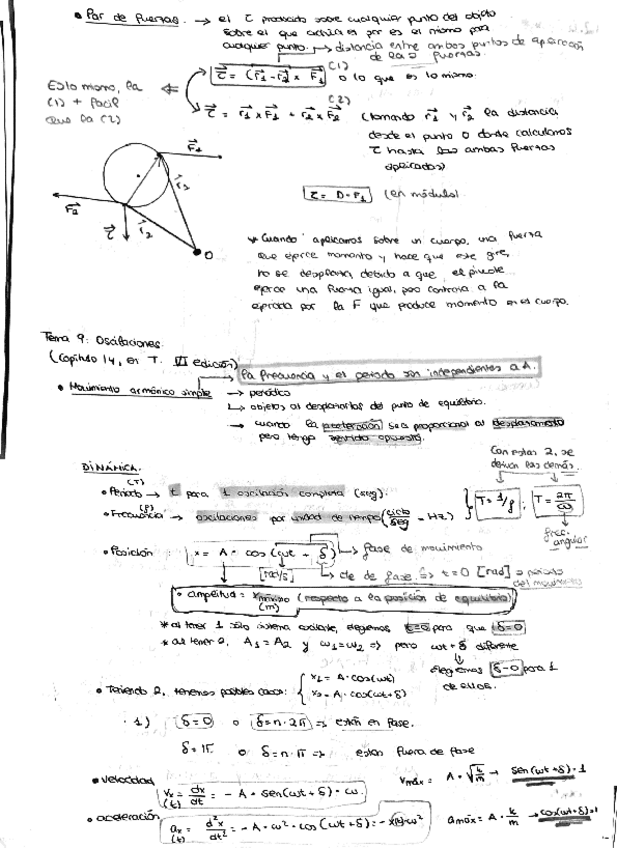 • Par de fuerzas. → el τ producido sobre cualquier punto del objeto
sobre el que actúa el par es el mismo para
cualquier punto. → distancia entre ambos puntos de aplicación
de las fuerzas.
τ = (r1 - r2) x F1 (1) o lo que es lo mismo.
Es lo mismo, la
(1) + fácil
que la (2)
τ = r1 x F1 + r2 x F2 (2) (tomando r1 y r2 la distancia
desde el punto O donde calculamos
τ hasta ambas fuerzas
aplicadas)
F1
r1
F2
τ
r2
O
τ = D · F1 (en módulo)
* Cuando aplicamos sobre un cuerpo, una fuerza
que ejerce momento y hace que este gire,
no se desplaza, debido a que el pivote
ejerce una fuerza igual, pero contraria a la
ejercida por la F que produce momento en el cuerpo.
Tema 9: Oscilaciones.
(Capítulo 14, en T. VI edición)
→ la frecuencia y el periodo son independientes a A.
• Movimiento armónico simple → periódico
↳ objetos al desplazarlos del punto de equilibrio.
→ cuando la aceleración sea proporcional al desplazamiento
pero tenga sentido opuesto.
Con estas 2, se
derivan las demás.
DINÁMICA.
(T)
• Periodo → t para 1 oscilación completa (seg)
(f)
• Frecuencia → oscilaciones por unidad de tiempo (ciclo/seg = Hz)
T = 1/f ; T = 2π/ω
frec.
angular
• Posición: x = A · cos (ωt + δ) → fase de movimiento
[rad/s] ↳ cte de fase => t=0 [rad]
del movimiento
• amplitud = xmáximo (respecto a la posición de equilibrio)
(m)
* al tener 1 sólo sistema oscilante, elegimos t=0 para que δ=0
* al tener 2, A1 = A2 y ω1 = ω2 => pero ωt + δ diferente
elegimos δ=0 para 1
de ellos.
• Teniendo 2, tenemos posibles casos: { x1 = A · cos(ωt)
x2 = A · cos(ωt+δ)
· 1) δ = 0 o δ = n · 2π => están en fase.
δ = π o δ = n · π => están fuera de fase
• velocidad
vx(t) = dx/dt = - A · sen(ωt + δ) · ω.
vmáx = A · √k/m → sen(ωt+δ) = 1
• aceleración
ax(t) = d²x/dt² = - A · ω² · cos (ωt + δ) = - x(t) · ω²
amáx = A · k/m → cos(ωt+δ)=1